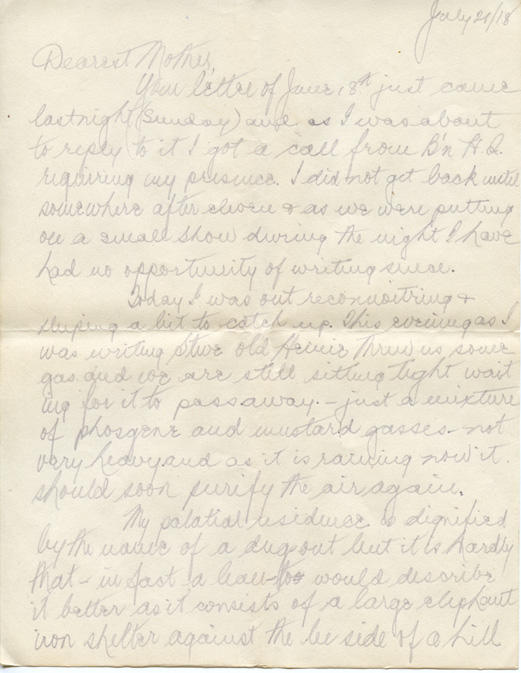 July 21/18
Dearest Mother,
Your letter of June 18th just came
last night (Sunday) and as I was about
to reply to it I got a call from B'n H.Q.
requiring my presence. I did not get back until
somewhere after eleven & as we were putting
on a small show during the night I have
had no opportunity of writing since.
Today I was out reconnoitring &
sleeping a bit to catch up. This evening as I
was writing Steve old Heinie threw us some
gas and we are still sitting tight wait
ing for it to pass away. - just a mixture
of phosgene and mustard gasses - not
very heavy and as it is raining now it
should soon purify the air again.
My palatial residence is dignified
by the name of a dug out but it is hardly
that - in fact a lean-too would describe
it better as it consists of a large elephant
iron shelter against the lee side of a hill